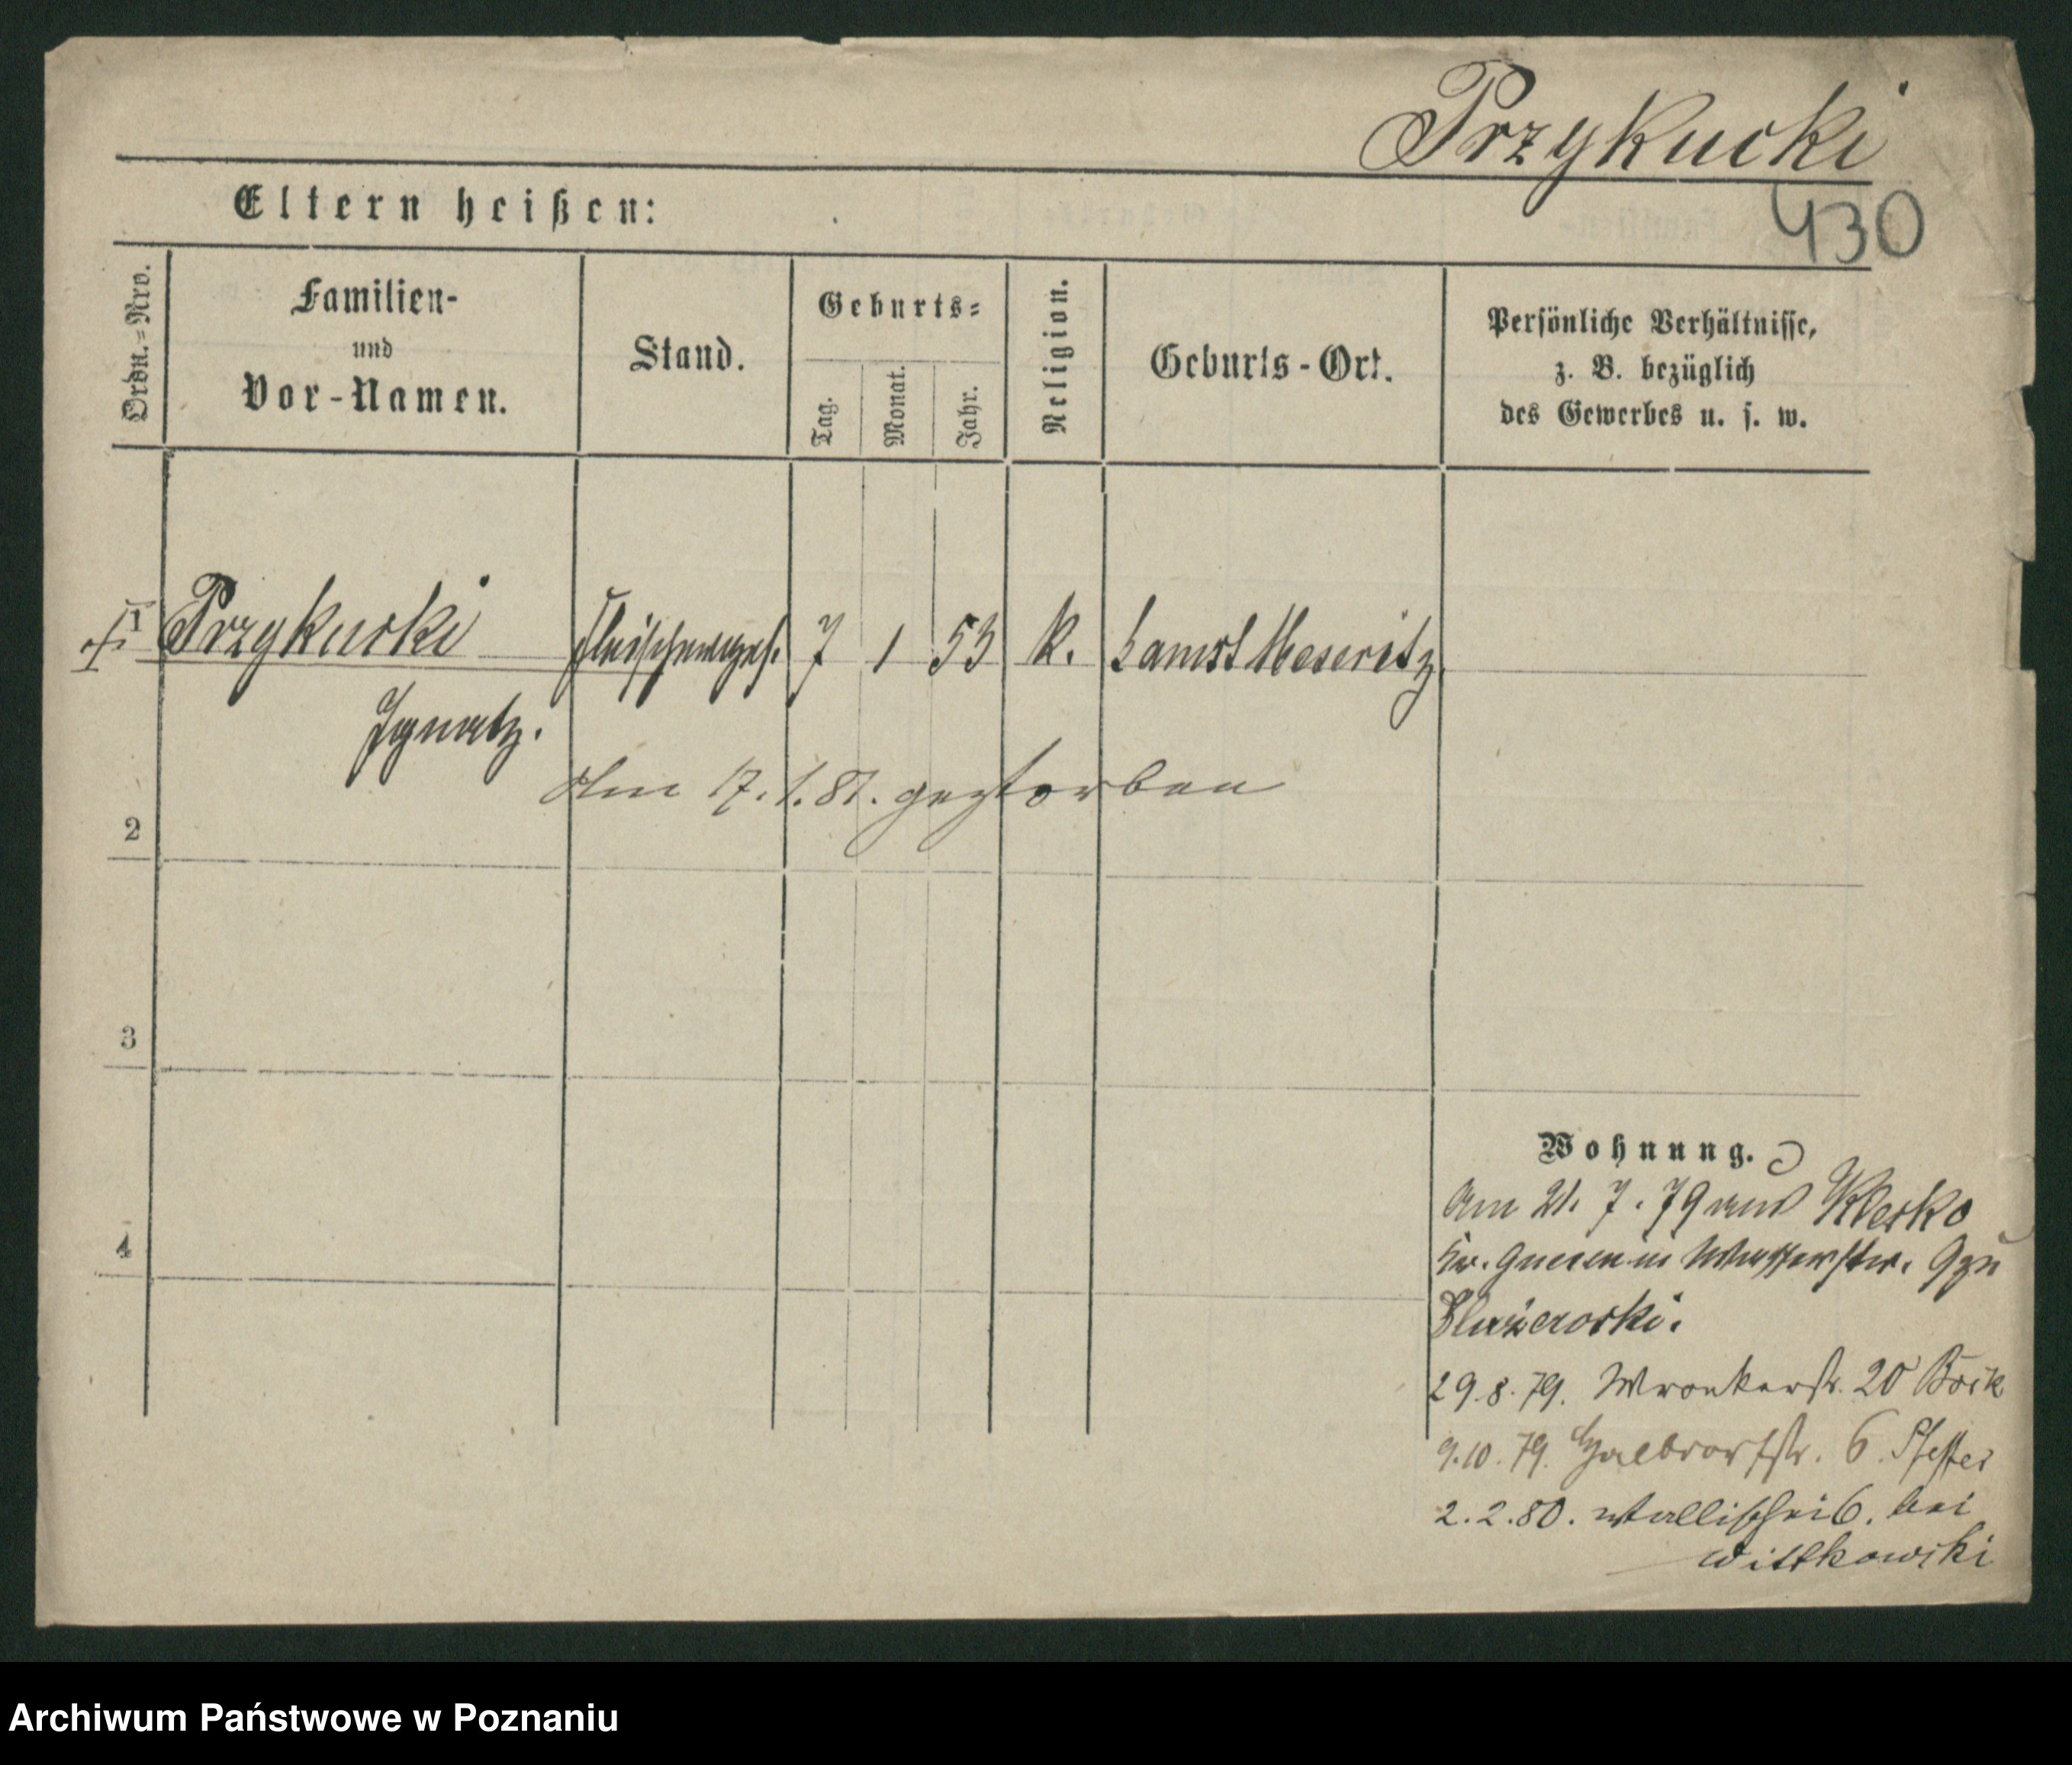 Przykucki
430
Eltern heißen:
Ordn.=Nro.
Familien-
und
Vor-Namen.
Stand.
Geburts=
Tag.
Monat.
Jahr.
Religion.
Geburts-Ort.
Persönliche Verhältnisse,
z. B. bezüglich
des Gewerbes u. s. w.
1 Przykucki Fleischerges. 7 1 53 K. Meseritz.
Ignatz.
Am 17. 1. 81. gestorben
2
3
4
Wohnung.
Am 21. 7. 79 aus Klecko
Kr. Gnesen in Wasserstr. 9 zu
29. 8. 79. Wronkerstr. 20
9. 10. 79. Halbdorfstr. 6.
2. 2. 80. Wallischei 6. bei
Wittkowski
Archiwum Państwowe w Poznaniu